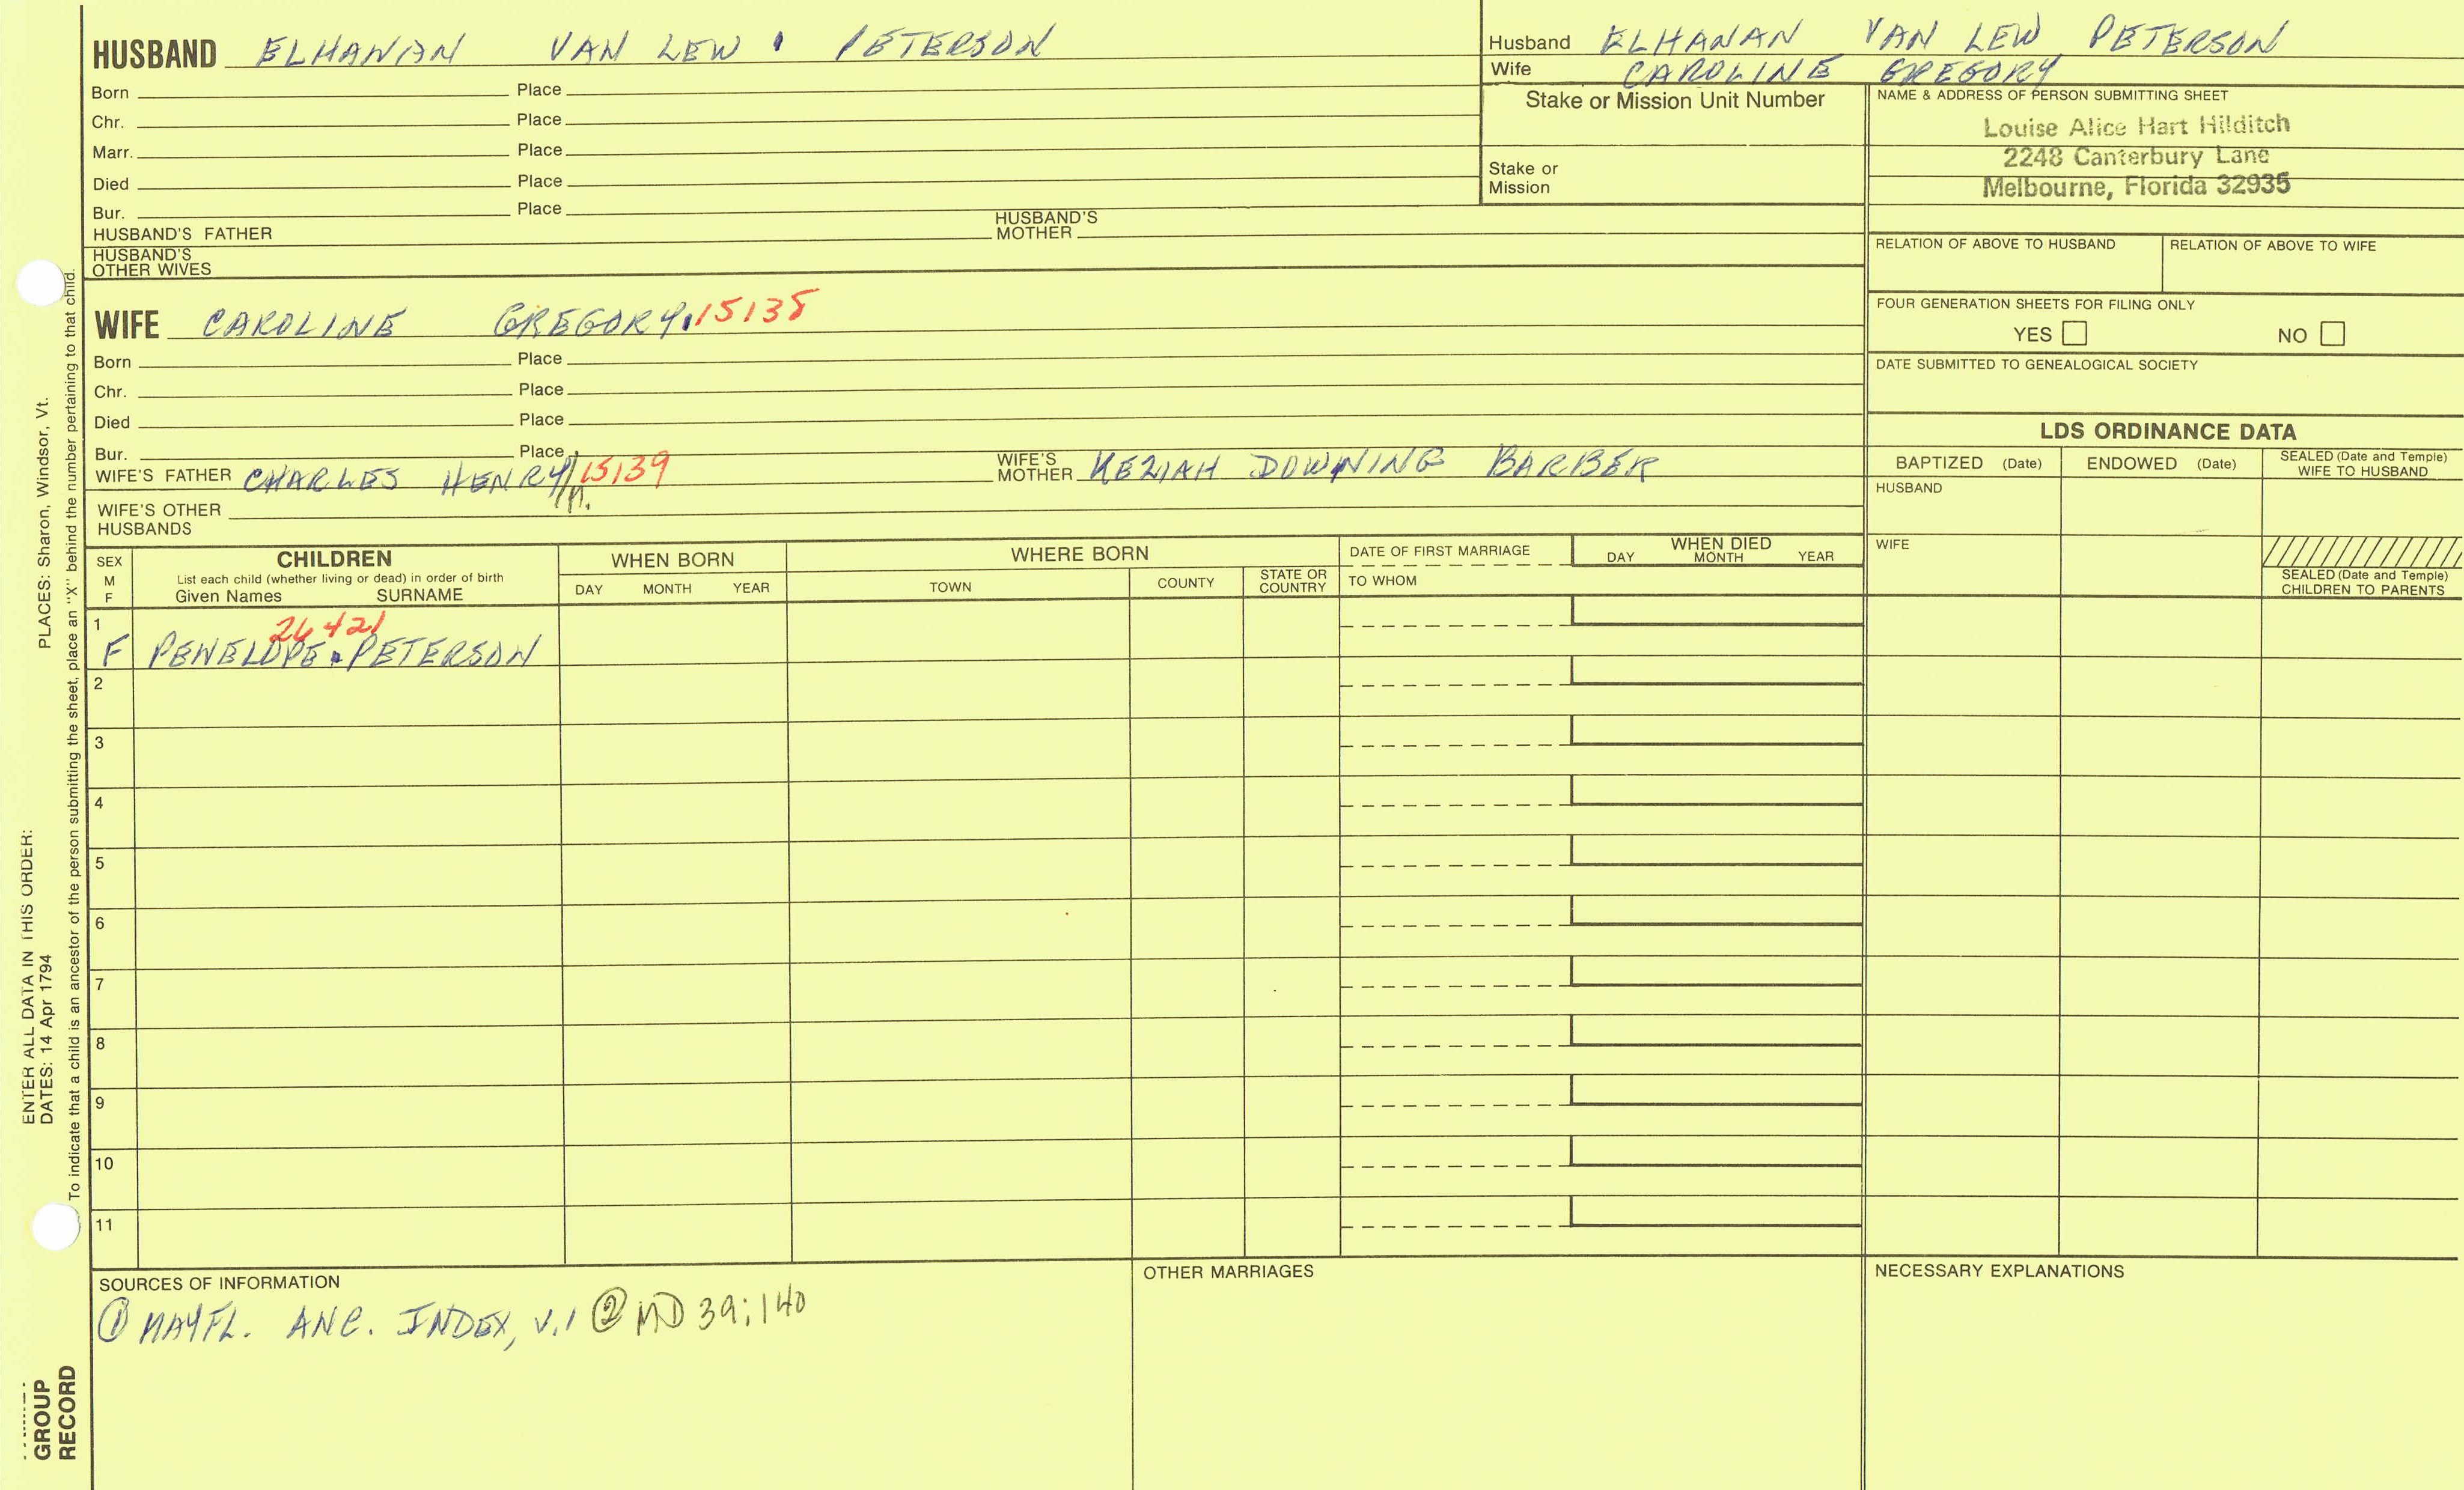 HUSBAND ELHANAN VAN LEW PETERSON
Born Place
Chr. Place
Marr. Place
Died Place
Bur. Place
HUSBAND'S FATHER HUSBAND'S MOTHER
HUSBAND'S OTHER WIVES
WIFE CAROLINE GREGORY 15138
Born Place
Chr. Place
Died Place
Bur. Place
WIFE'S FATHER CHARLES HENRY 15139 WIFE'S MOTHER KEZIAH DOWNING BARBER
WIFE'S OTHER HUSBANDS
Husband ELHANAN VAN LEW PETERSON
Wife CAROLINE GREGORY
Stake or Mission Unit Number
Stake or Mission
NAME & ADDRESS OF PERSON SUBMITTING SHEET
Louise Alice Hart Hilditch
2248 Canterbury Lane
Melbourne, Florida 32935
RELATION OF ABOVE TO HUSBAND RELATION OF ABOVE TO WIFE
FOUR GENERATION SHEETS FOR FILING ONLY
YES NO
DATE SUBMITTED TO GENEALOGICAL SOCIETY
LDS ORDINANCE DATA
BAPTIZED (Date) ENDOWED (Date) SEALED (Date and Temple) WIFE TO HUSBAND
HUSBAND
WIFE
SEALED (Date and Temple) CHILDREN TO PARENTS
SEX M F
CHILDREN
List each child (whether living or dead) in order of birth
Given Names SURNAME
WHEN BORN
DAY MONTH YEAR
WHERE BORN
TOWN COUNTY STATE OR COUNTRY
DATE OF FIRST MARRIAGE
TO WHOM
WHEN DIED
DAY MONTH YEAR
1 26421
F PENELOPE PETERSON
2
3
4
5
6
7
8
9
10
11
SOURCES OF INFORMATION
① MAYFL. ANC. INDEX, V.1 ② MD 39:140
OTHER MARRIAGES
NECESSARY EXPLANATIONS
ENTER ALL DATA IN THIS ORDER:
DATES: 14 Apr 1794 PLACES: Sharon, Windsor, Vt.
To indicate that a child is an ancestor of the person submitting the sheet, place an "X" behind the number pertaining to that child.
GROUP
RECORD